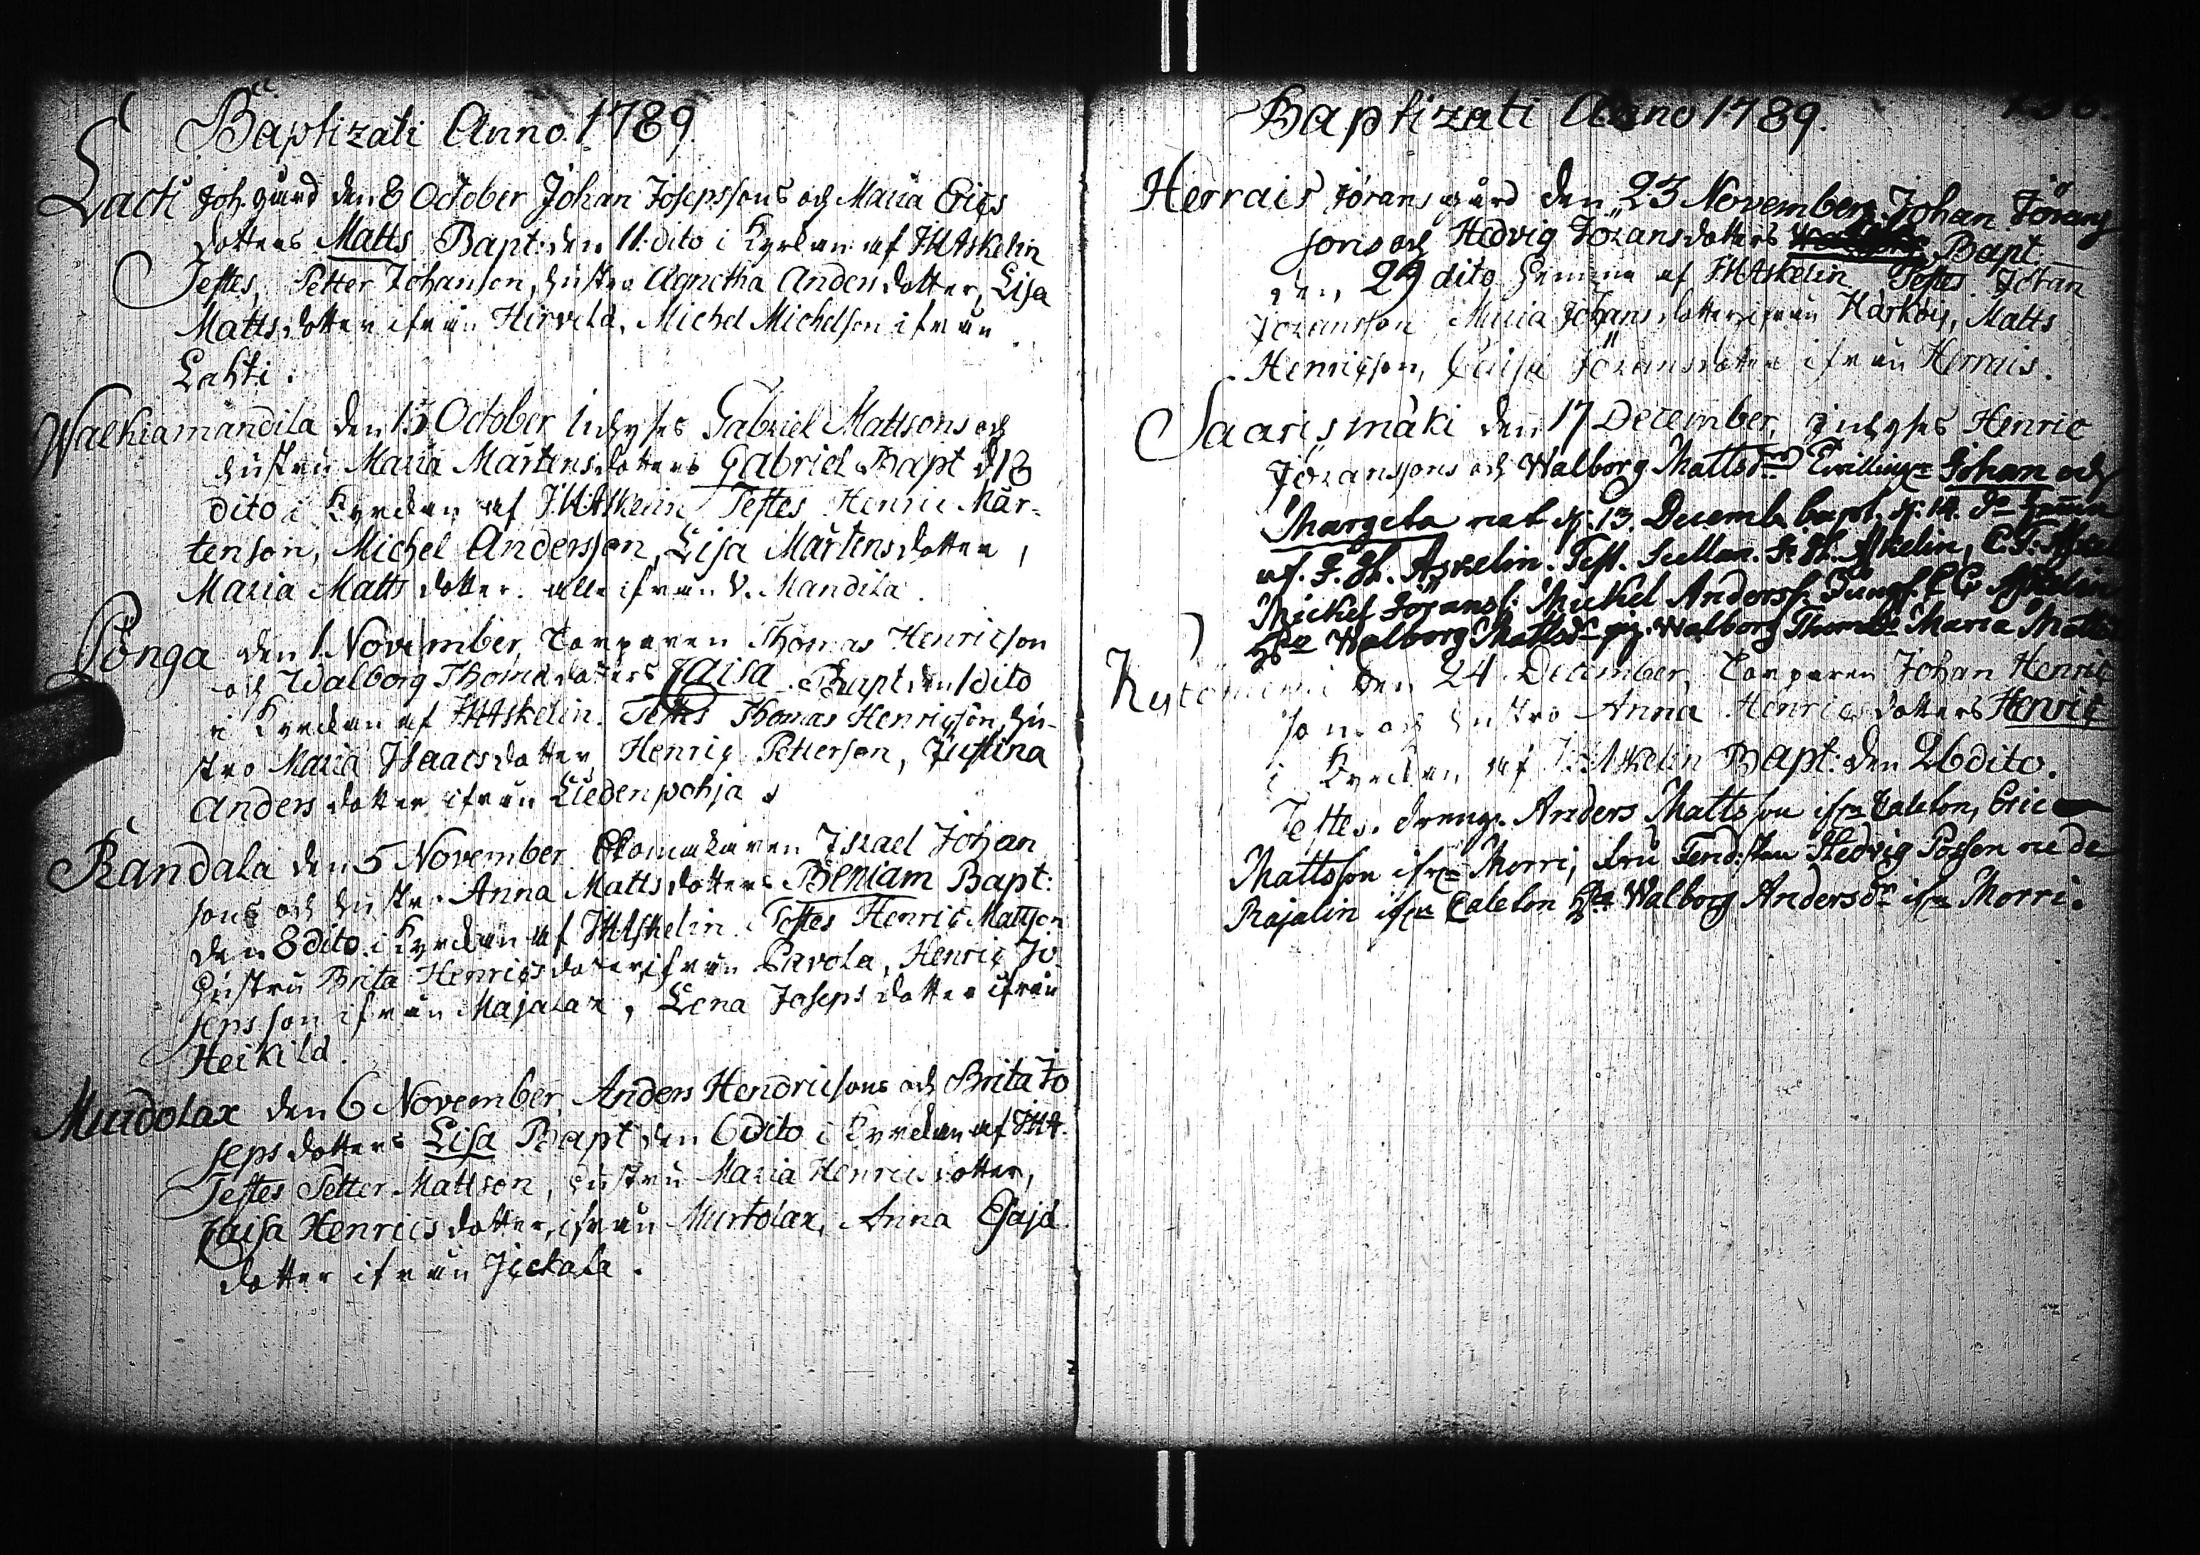 Baptizati Anno 1789.
Lacti Joh. gård den 8 October Johan Josepssons och Maria Erics
dotters Matts Bapt: den 11. dito i Kyrkan af JHAskelin
Testes, Petter Johanson, hustru Agnetha Anders dotter, Lisa
Matts dotter ifrån Hirvelä, Michel Michelson ifrån
Lahti.
Walkiamandila den 15 October Gabriel Mattsons och
hustru Maria Mårtensdotters Gabriel Bapt d 18
dito i Kyrkan af JHAskelin Testes Henric Mår-
tenson, Michel Andersson, Lisa Mårtensdotter,
Maria Matts dotter. alla ifrån V. Mandila.
Pönga den 1 November, Torparen Thomas Henricson
och Walborg Thomædotters Caisa Bapt den 1 dito
i Kyrkan af JHAskelin. Testes Thomas Henricson, hu-
stro Maria Isaacsdotter, Henric Petterson, Justina
Anders dotter ifrån Liedenpohja.
Randala den 5 November Skomakaren Israel Johan
sons och hustro Anna Mattsdotters Beniam Bapt:
den 8 dito i Kyrkan af JHAskelin. Testes Henric Mattson
hustru Brita Henricsdotter ifrån Pavola, Henric Jo-
sepsson ifrån Majalax, Lena Joseps dotter ifrån
Heikilä.
Murdolax den 6 November, Anders Hendricsons och Brita Jo
seps dotters Lisa Bapt den 6 dito i Kyrkan af JHA.
Testes Petter Mattson, hustru Maria Henricsdotter,
Caisa Henrics dotter, ifrån Murtolax, Anna Esajæ
dotter ifrån Jickala.
Baptizati Anno 1789.
Herrais Jörans gård den 23 November, Johan Jörans
sons och Hedvig Jöransdotters Bapt
den 29 dito hemma af JHAskelin Testes. Jöran
Jöransson Maria Johansdotter ifrån Harkois, Matts
Henricson, Caisa Jöransdotter ifrån Herrais.
Saarismäki den 17 December, Henric
Jöranssons och Walborg Mattsdr Twillingar Johan och
Margeta nat d. 13. Decemb. bapt. d. 14. do hemma
af J. H. Askelin. Test. J. H. Askelin,
Mickel Jöranss. Mickel Anderss. Jungf. Askelin
Hro Walborg Mattsdr pig. Walborg Thomædr Maria Matts
den 24 December, Torparen Johan Henric
son och hustro Anna Henricsdotters Henric
i Kyrkan af JHAskelin Bapt: den 26 dito.
Testes. Drengr. Anders Mattsson ifrn Eric
Mattsson ifrn Morri, Fru Hedvig
Rajalin ifrn Hro Walborg Andersdr ifrn Morri.